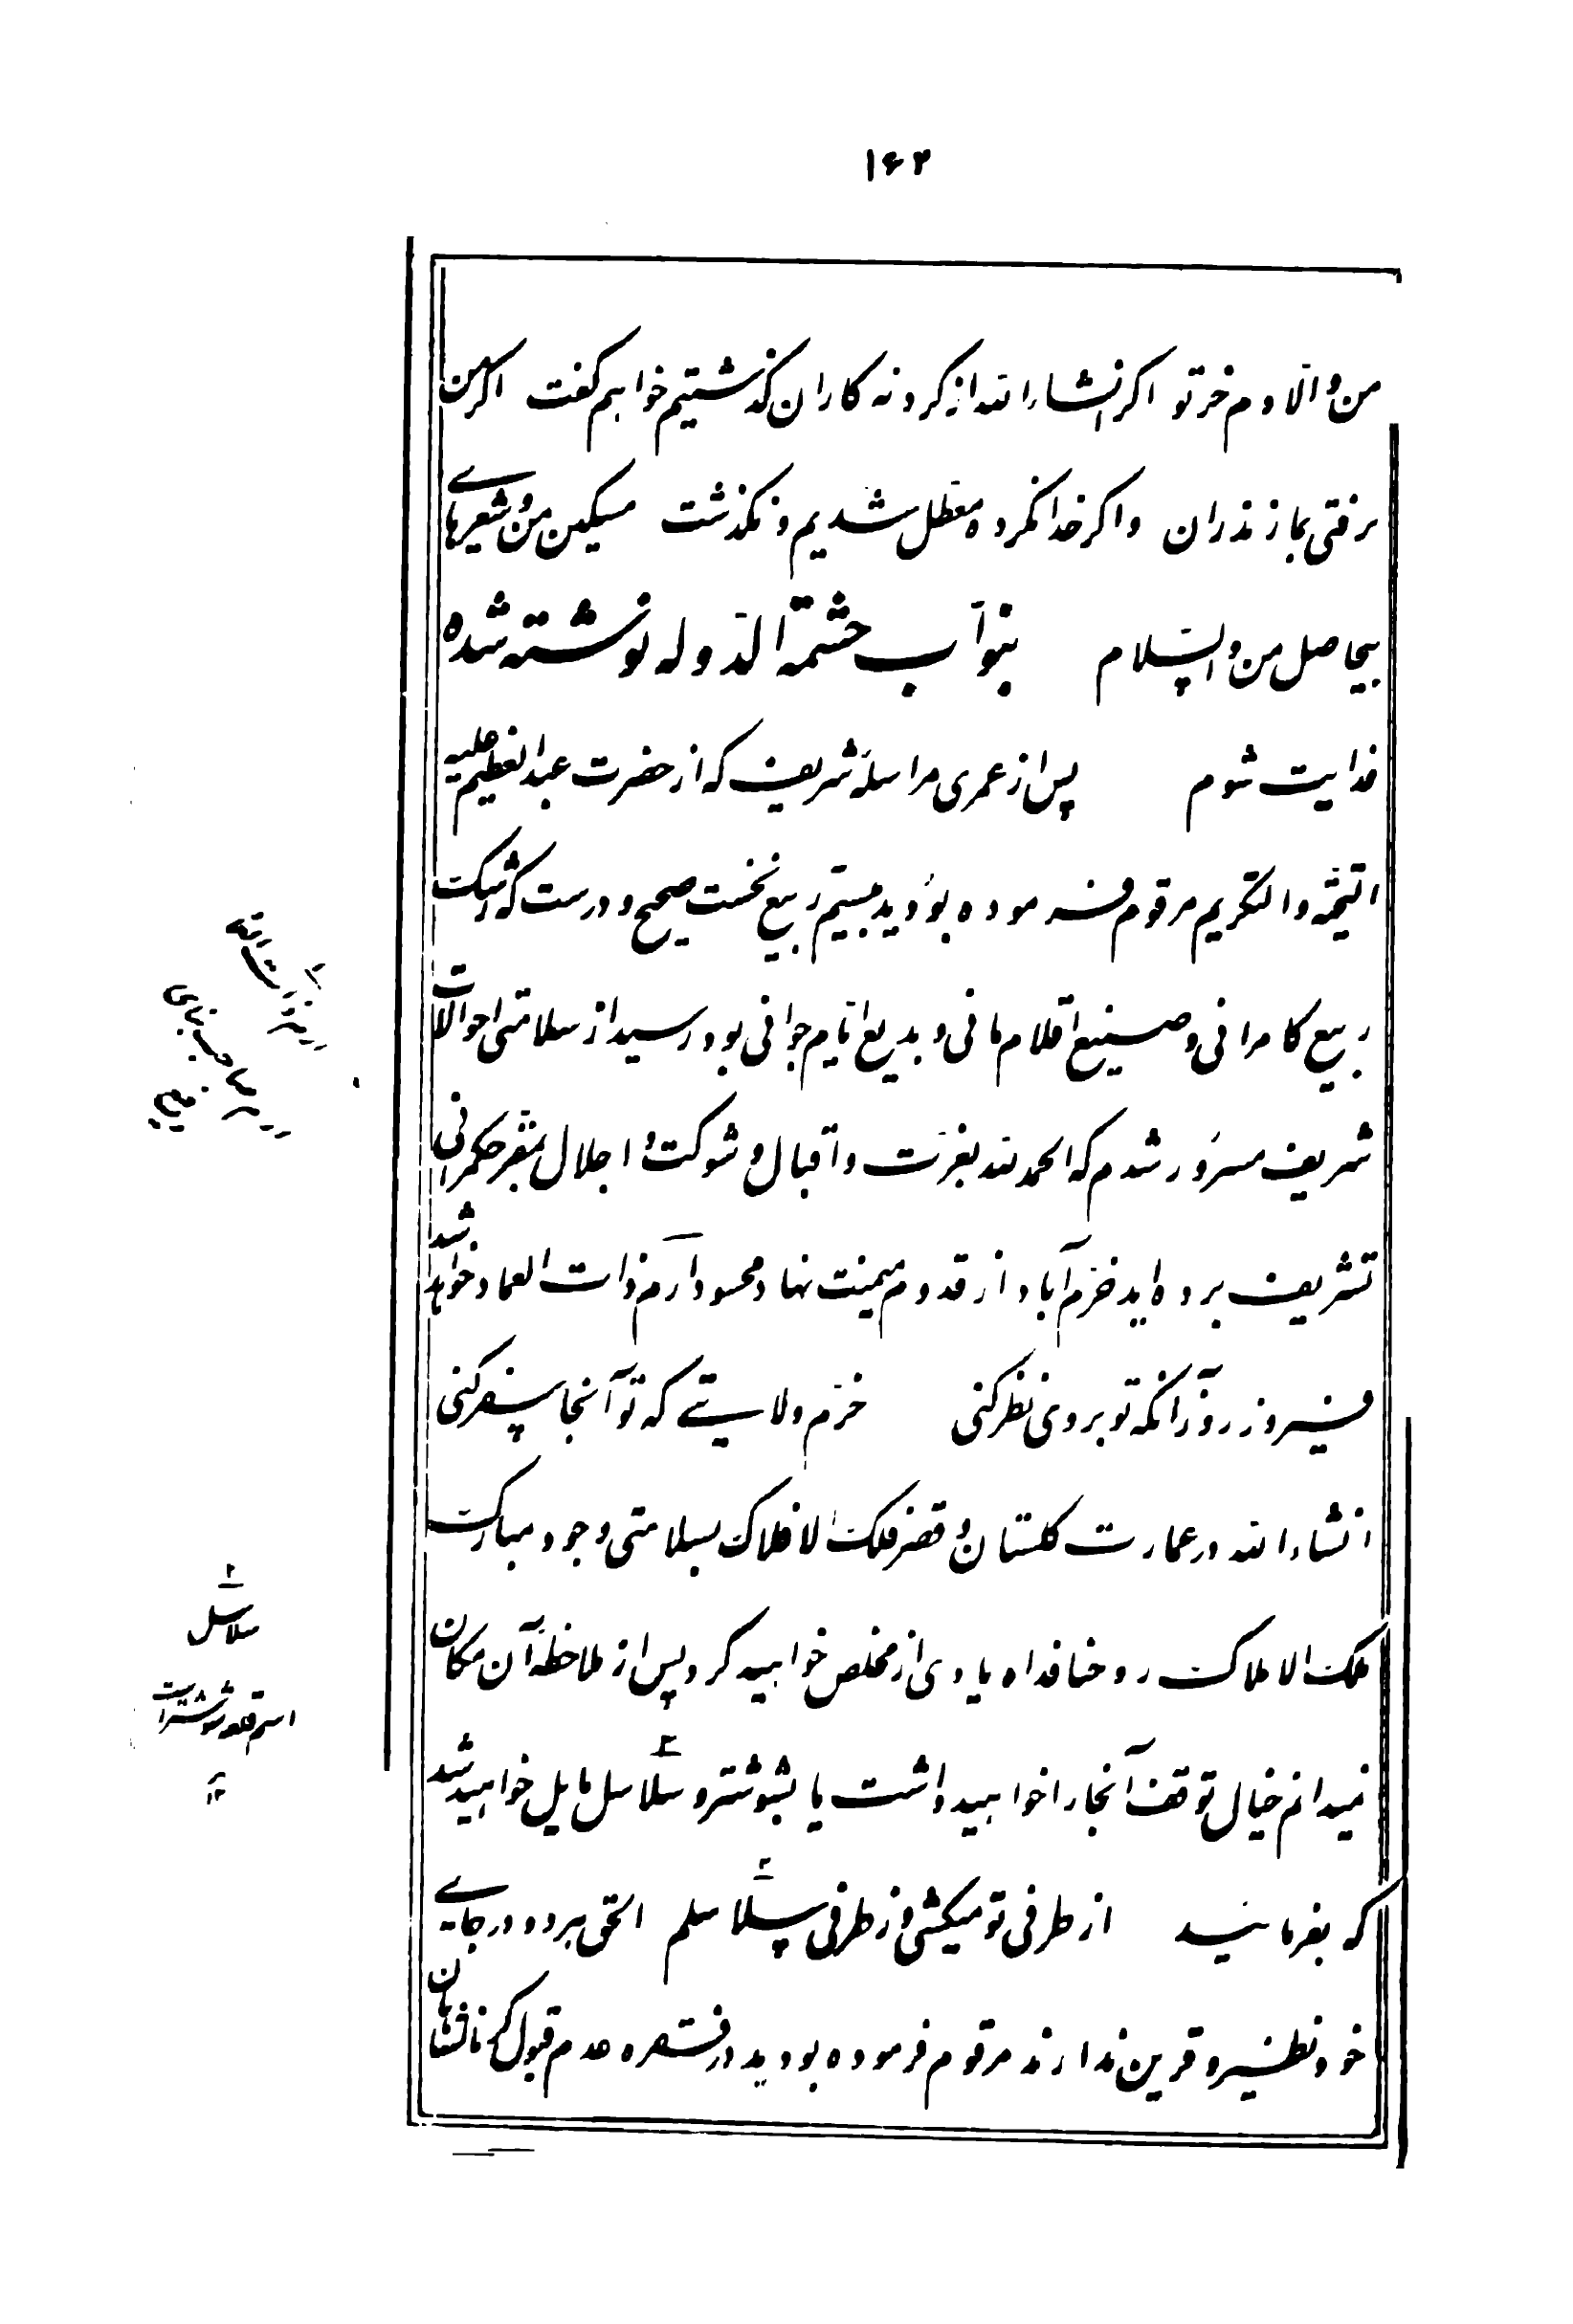 ۱۶۲
من والا دم خر تو اکر انشاءالله از کردنه کاران کذشتیم خواهم کفت اکر من
برفتی بمازندران واکر خدا نکرده معطل شدیم و نکذشت مسکین من و شعرهای
بیحاصل من والسلام بنواب حشمة الدوله نوشته شده
فدایت شوم پس از عمری مراسله شریف که از حضرت عبدالعظیم علیه
التحیة والتکریم مرقوم فرموده بودید بیستم ربیع نخست صحیح و درست که رشک
ربیع کامرانی و صنیع اقلام مانی و بدیع ایام جوانی بود رسید از سلامتی احوالات
شریف مسرور شدم که الحمد لله بعزت و اقبال و شوکت و اجلال بمقر حکمرانی
تشریف برده اید خرم آباد از قدوم میمنت نهاد محسود ارم ذات العماد خواهد شد
فیروز روز آنکه تو بروی نظر کنی خرم ولایتی که تو آنجا سفر کنی
انشاءالله در عمارت کلستان و قصر فلک الافلاک بسلامتی وجود مبارک
ملک الاملاک روحنا فداه یادی از مخلص خواهید کرد پس از ملاحظه آن مکان
نمیدانم خیال توقف آنجا را خواهید داشت یا بشوشتر و سلاسل مایل خواهید شد
که بفرمائید از طرفی تو میکشی وز طرفی سلاسلم الحق هر دو در جای
خود نظیر و قرین ندارند مرقوم فرموده بودید در فقره عدم قبول کرمانشاهان
۲
سلاسل
اسم قلعه شوشتر است
۱۲